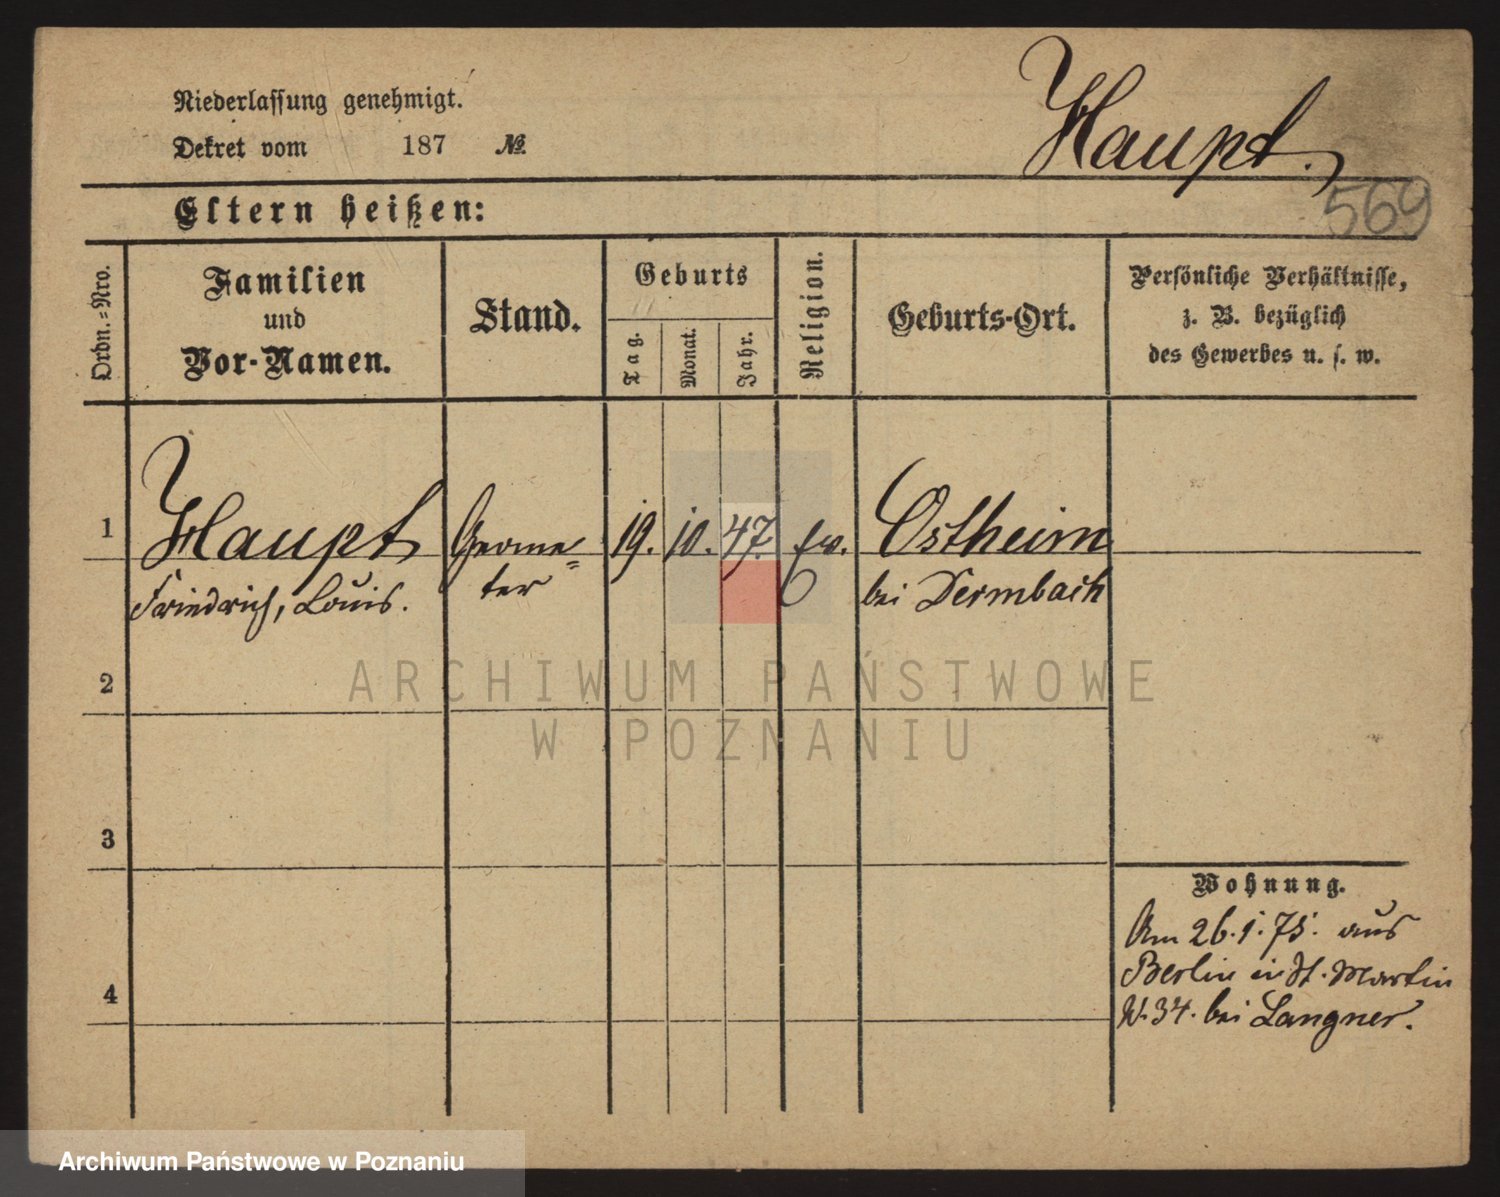 Niederlassung genehmigt.
Dekret vom 187 №
Haupt.
569
Eltern heißen:
Ordn.=Nro.
Familien
und
Vor-Namen.
Stand.
Geburts
Tag.
Monat.
Jahr.
Religion.
Geburts-Ort.
Persönliche Verhältnisse,
z. B. bezüglich
des Gewerbes u. s. w.
1 Haupt Geome= 19. 10. 47. ev. Ostheim
Friedrich, Louis. ter bei Dermbach
2
ARCHIWUM PAŃSTWOWE
W POZNANIU
3
Wohnung.
Am 26.1.75. aus
Berlin in St. Martin
4
N. 34. bei Langner.
Archiwum Państwowe w Poznaniu